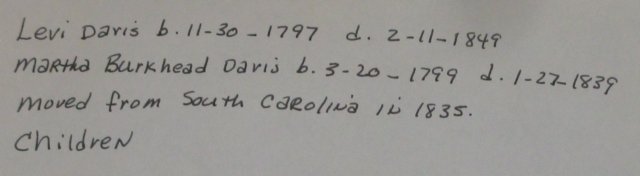 Levi Davis b. 11-30-1797 d. 2-11-1849
Martha Burkhead Davis b. 3-20-1799 d. 1-27-1839
Moved from South Carolina in 1835.
Children